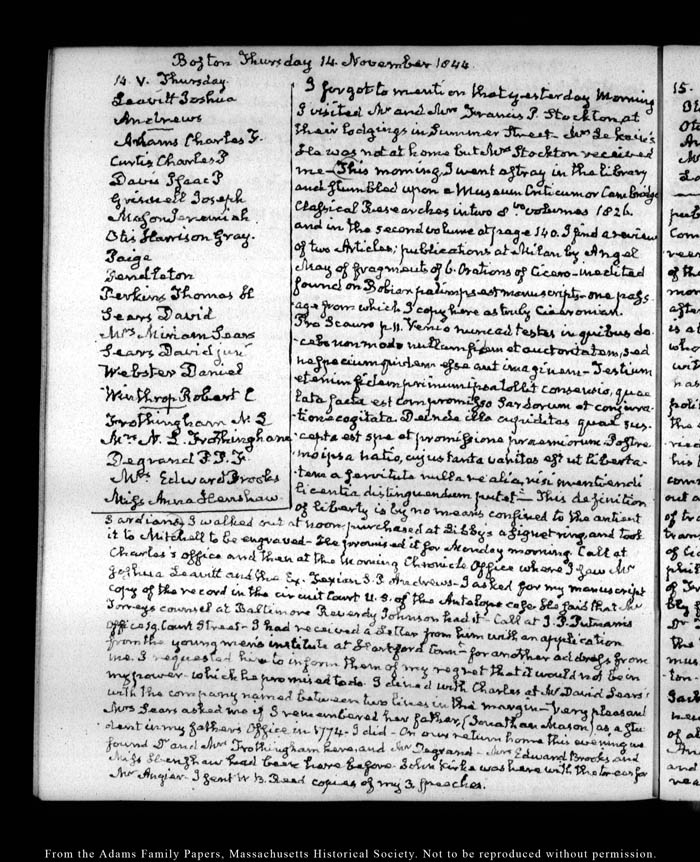 Boston Thursday 14. November 1844.
14. V. Thursday.
Leavitt Joshua
Andrews
Adams Charles F.
Curtis Charles P
Davis Isaac P
Griswell Joseph
Mason Jeremiah
Otis Harrison Gray.
Paige
Pendleton
Perkins Thomas H
Sears David
Mrs Miriam Sears
Sears David junr
Webster Daniel
Winthrop Robert C
Frothingham N. L
Mrs N. L. Frothingham
Degrand P. P. F.
Mrs Edward Brooks
Miss Anna Henshaw
I forgot to mention that yesterday Morning
I visited Mr and Mrs Francis P. Stockton, at
their lodgings in Summer Street Mrs
He was not at home but Mrs Stockton received
me – This morning I went astray in the library
and stumbled upon a Museum Criticum or Cambridge
Classical Researches in two 8vo volumes 1826.
and in the second volume at page 140. I find a review
of two Articles; publications at Milan by Angel
May of fragments of 6. Orations of Cicero – inedited
found on Bobian palimpsest manuscripts – one pass-
age from which I copy here as truly Ciceronian.
Pro Scauro p. 11. Venio nunc ad testes in quibus do-
cebo non modo nullum fidem et auctoritatem, sed
ne speciem quidem esse aut imaginem – Testium
etenim fidem primum ipsa tollit consensio, quae
lata facta est compromisso Sardorum et conjura-
tione cogitata. Deinde illa cupiditas quae sus-
cepta est spe et promissione praemiorum Postre-
mo ipsa natio, cujus tanta vanitas est ut liberta-
tem a servitute nulla re alia, nisi mentiendi
licentia distinguendum putet – This definition
of liberty is by no means confined to the antient
Sardians, I walked out at noon – purchased at Bibby's a signet ring, and took
it to Mitchell to be engraved – He promised it for Monday morning Call at
Charles's office and then at the Morning Chronicle Office where I saw Mr
Joshua Leavitt and the Ex. Texian S. P. Andrews – I asked for my manuscript
copy of the record in the circuit Court U. S. of the Antelope case He said that Mr
Torreys counsel at Baltimore Reverdy Johnson had it – Call at J. P. Putnam's
Office 19. Court Street – I had received a Letter from him with an application
from the young men's institute at Hartford Conn – for another address from
me. I requested him to inform them of my regret that it would not be in
my power – which he promised to do. I dined with Charles at Mr David Sears's
with the company named between two lines in the margin – Very pleasant
Mrs Sears asked me if I remembered her father, (Jonathan Mason) as a stu-
dent in my father's Office in 1774. I did – On our return home this evening we
found Dr and Mrs Frothingham here, and Mr Degrand – Mrs Edward Brooks and
Miss Henshaw had been here before – John Kirke was here with the trees for
Mr Angier – I sent W. B. Reed copies of my 3. speeches.
15.
From the Adams Family Papers, Massachusetts Historical Society. Not to be reproduced without permission.